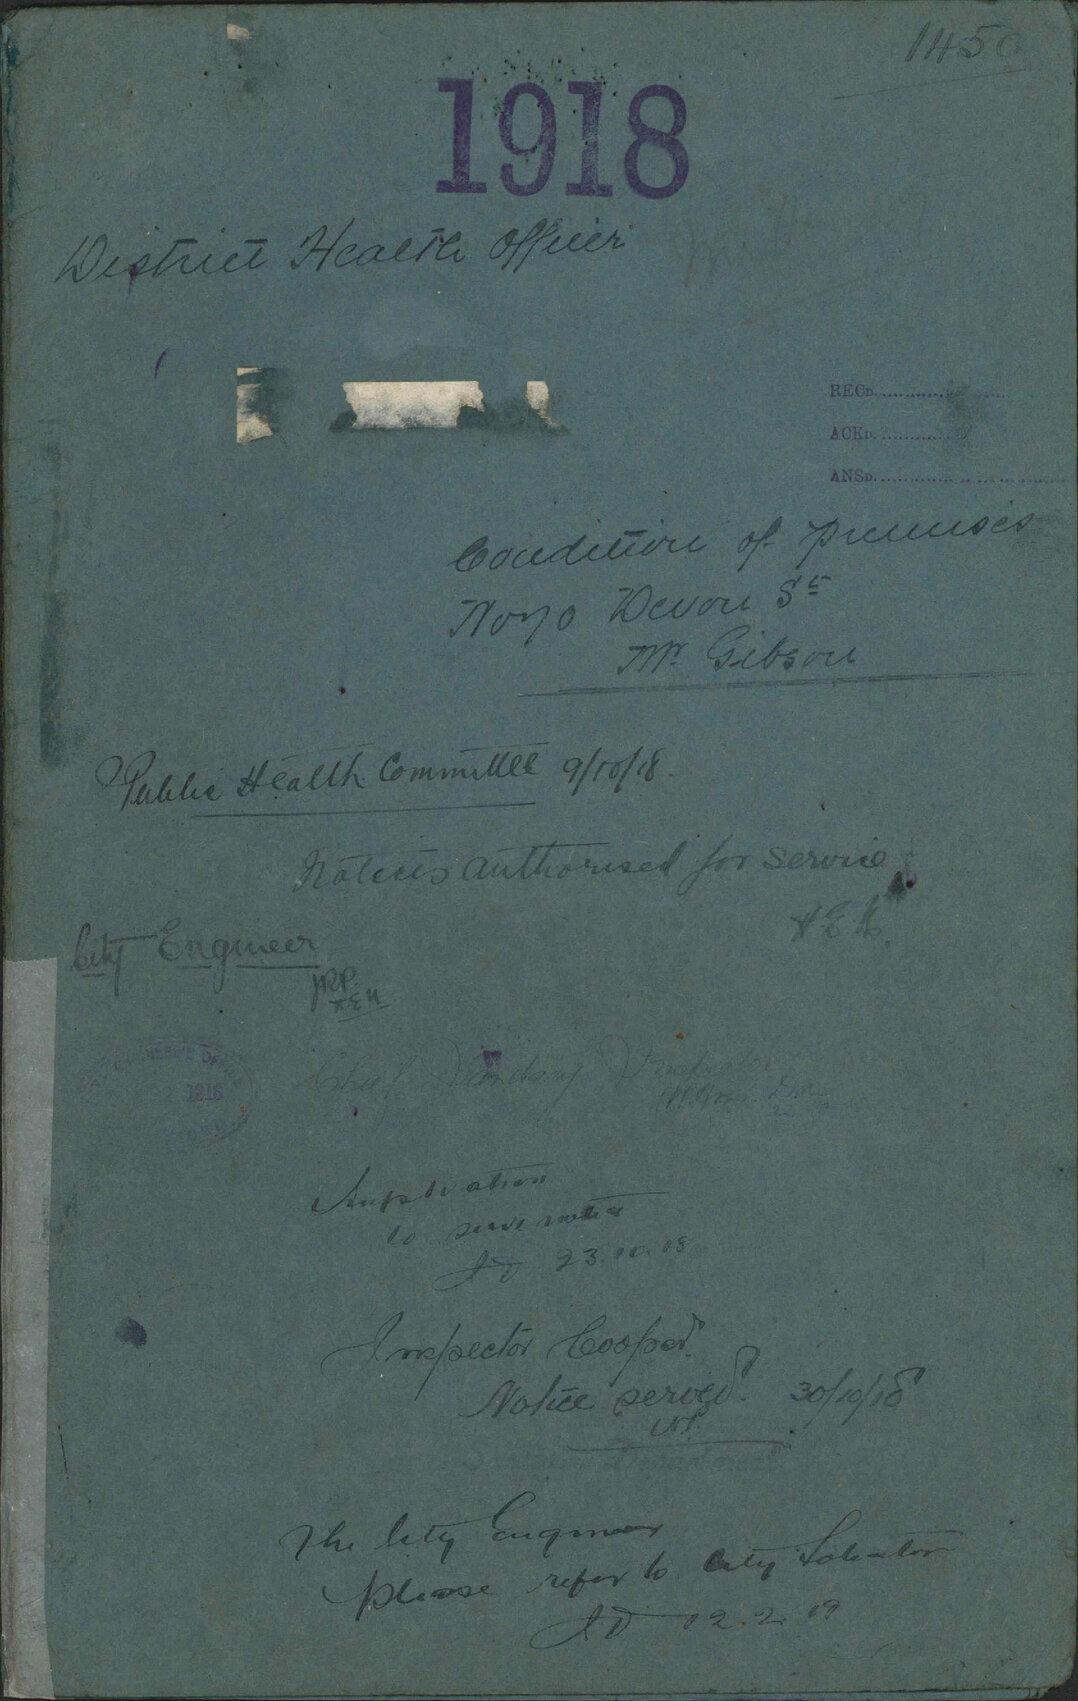 1450
1918
District Health Officer
RECD.
ACKD.
ANSD.
Condition of premises
No 70 Devon St
Mr Gibson
Public Health Committee 9/10/18.
Notices authorised for service
City Engineer
1918
Chief Sanitary Inspector
to serve notice
23.10.18
Inspector Cooper
Notice served. 30/10/18
The City Engineer
please refer to City Solicitor
12.2.19